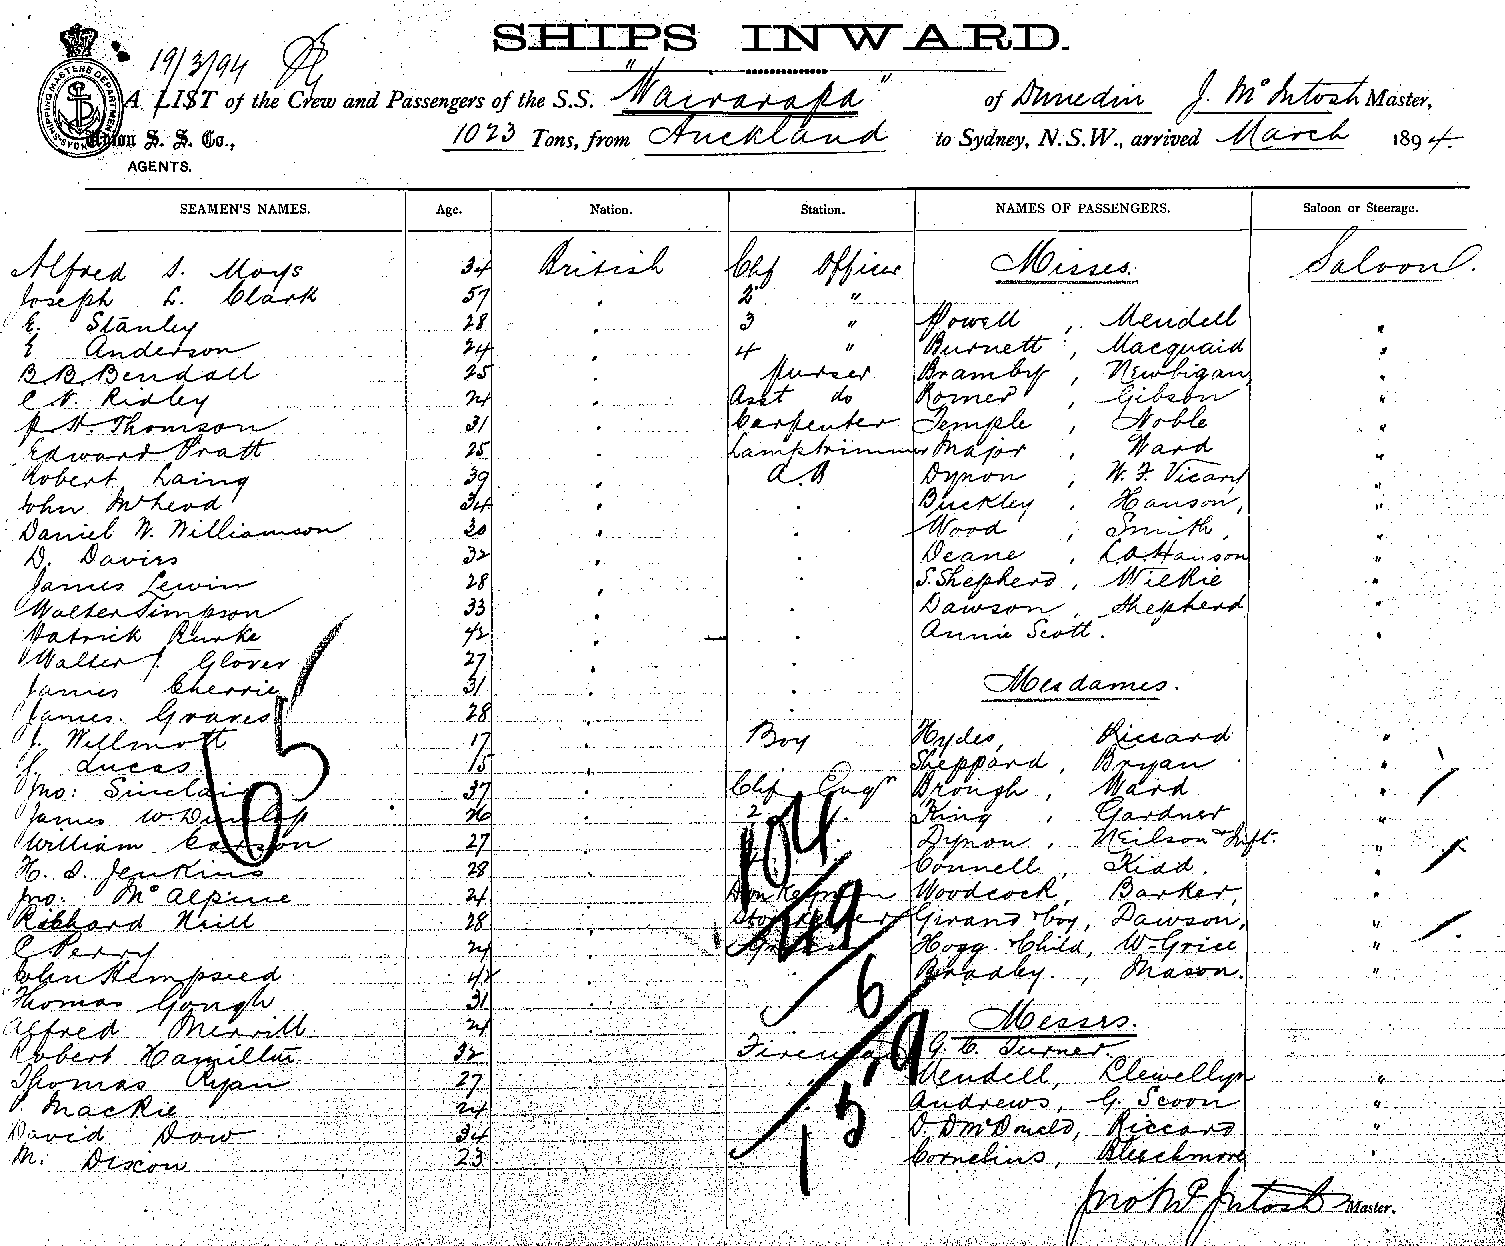 SHIPS INWARD.
19/3/94
A LIST of the Crew and Passengers of the S.S. "Wairarapa" of Dunedin J. McIntosh Master,
Union S. S. Co., 1023 Tons, from Auckland to Sydney, N.S.W., arrived March 1894.
AGENTS.
SEAMEN'S NAMES. Age. Nation. Station. NAMES OF PASSENGERS. Saloon or Steerage.
Alfred S. Moys 34 British Chf Officer Misses. Saloon.
Joseph L. Clark 57 2 "
E. Stanley 28 3 " Powell, Mendell "
E Anderson 24 4 " Burnett, Macquaid "
B. B. Bendall 25 Purser Bramby, Newbigan, "
C N. Ridley 24 Asst do Romer, Gibson "
J. H. Thomson 31 Carpenter Temple, Noble "
Edward Pratt 25 Lamptrimmer Major, Ward "
Robert Laing 39 A.B Dynon, W. F. Vicars "
John McLeod 34 Buckley, Hanson, "
Daniel W. Williamson 30 Wood, Smith, "
D. Davies 32 Deane, L.A. Hanson "
James Lewin 28 S. Shepherd, Wilkie "
Walter Simpson 33 Dawson, Shepherd "
Patrick Burke 42 Annie Scott. "
Walter J. Glover 27
James Cherrie 31 Mesdames.
James Graves 28
J. Willmott 17 Boy Hydes, Riccard "
J. Lucas 15 Sheppard, Bryan "
Jno: Sinclair 37 Chf Engr Brough, Ward "
James W Dunlop 26 2 King, Gardner "
William Carson 27 Dynon, Neilson & Inft. "
H. S. Jenkins 28 Connell, Kidd. "
Jno. McAlpine 24 Donkeyman Woodcock, Barker, "
Richard Neill 28 Storekeeper Girand & boy, Dawson, "
C Perry 24 Hogg & Child, W. Grice "
John Hempseed 42 Bradley, Mason. "
Thomas Gough 31
Alfred Merrill 24 Messrs.
Robert Hamilton 32 Fireman G. E. Turner.
Thomas Ryan 27 Mendell, Llewellyn "
Mackie 24 Andrews, G. Scoon "
David Dow 34 D. D McDonald, Riccard "
M. Dixon 23 Cornelius, Bleechmore "
65
104
49
6
159
Jno McIntosh Master.